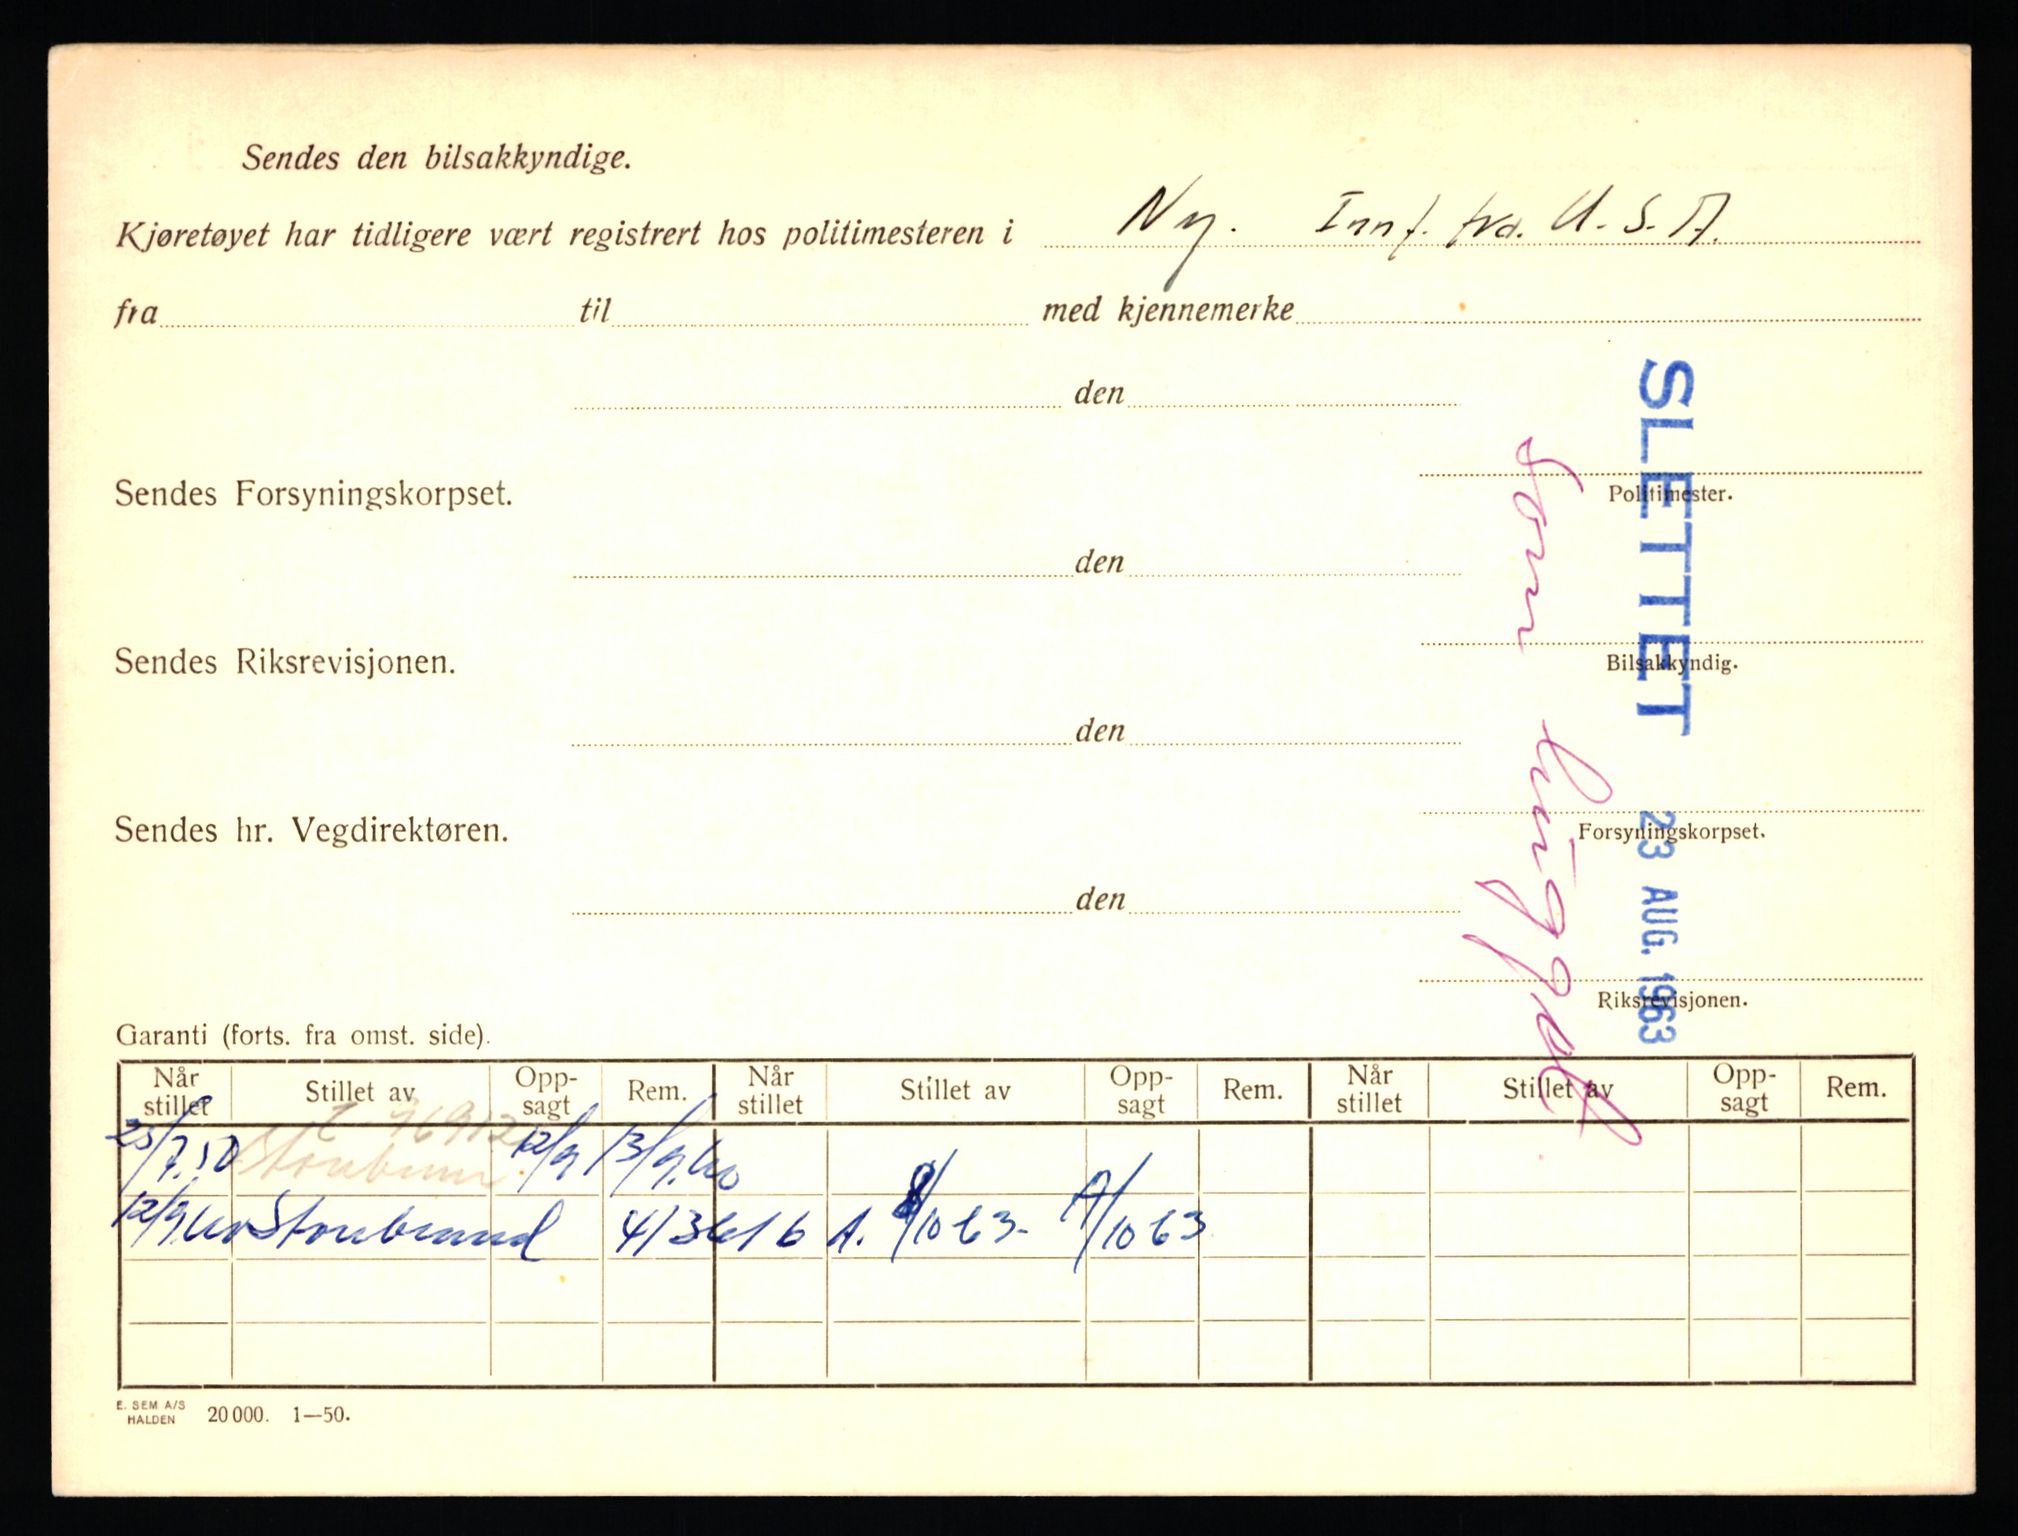 Sendes den bilsakkyndige.
Kjøretøyet har tidligere vært registrert hos politimesteren i Ny. Innf. fra. U.S.A.
fra til med kjennemerke
den
Politimester.
Sendes Forsyningskorpset.
den
Bilsakkyndig.
Sendes Riksrevisjonen.
den
Forsyningskorpset.
Sendes hr. Vegdirektøren.
den
Riksrevisjonen.
SLETTET 23 AUG. 1963
som hugget
Garanti (forts. fra omst. side).
Når stillet Stillet av Opp-sagt Rem. Når stillet Stillet av Opp-sagt Rem. Når stillet Stillet av Opp-sagt Rem.
25/7.50 12/9 13/9.60
12/9.60 Storebrand 413616 A. 8/10 63- A/10 63
E. SEM A/S
HALDEN 20 000. 1—50.